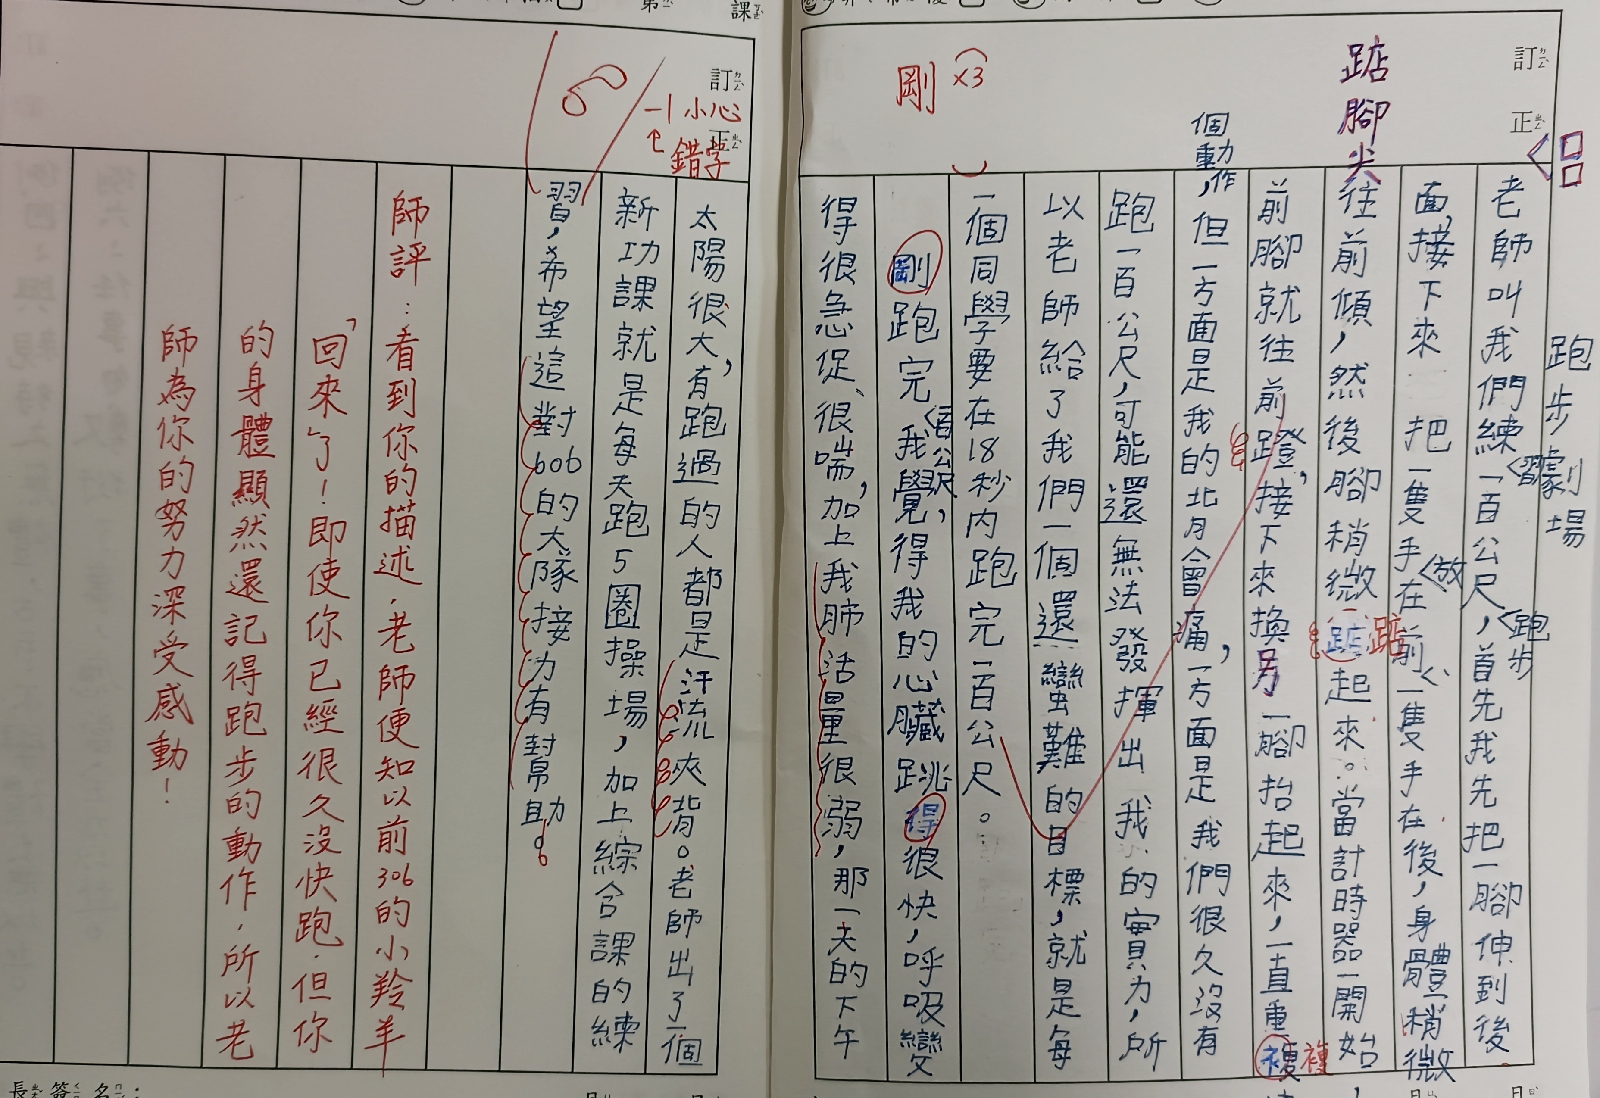 跑步劇場
老師叫我們練習一百公尺跑步，首先我先把一腳伸到後
面，接下來把一隻手放在前、一隻手在後，身體稍微
往前傾，然後後腳稍微踮起來。當計時器一開始，
前腳就往前蹬，接下來換另一腳抬起來，一直重複
個動作，但一方面是我的背會痛，一方面是我們很久沒有
跑一百公尺，可能還無法發揮出我的實力，所
以老師給了我們一個還蠻難的目標，就是每
一個同學要在18秒內跑完一百公尺。
剛跑完一百公尺，我覺得我的心臟跳得很快，呼吸變
得很急促、很喘，加上我肺活量很弱，那一天的下午
踮腳尖
剛 x3
訂正
太陽很大，有跑過的人都是汗流夾背。老師出了一個
新功課就是每天跑5圈操場，加上綜合課的練
習，希望這對606的大隊接力有幫助。
訂正
-1 小心
錯字
師評：看到你的描述，老師便知以前306的小羚羊
「回來」了！即使你已經很久沒快跑，但你
的身體顯然還記得跑步的動作，所以老
師為你的努力深受感動！
第 課
長簽名：